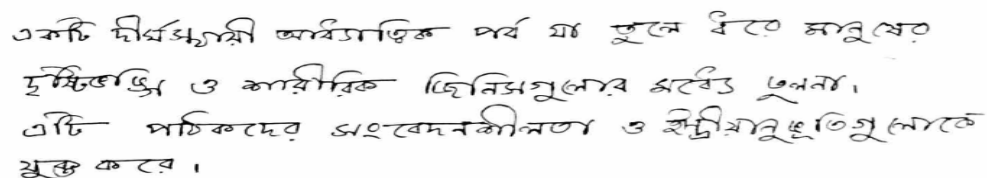 একটি দীর্ঘস্থায়ী আধ্যাত্বিক পর্ব যা তুলে ধরে মানুষের
দৃষ্টিভঙ্গি ও শারীরিক জিনিসগুলোর মধ্যে তুলনা।
এটি পঠিকদের সংবেদনশীলতা ও ইন্দ্রীয়ানুভূতিগুলোকে
যুক্ত করে।